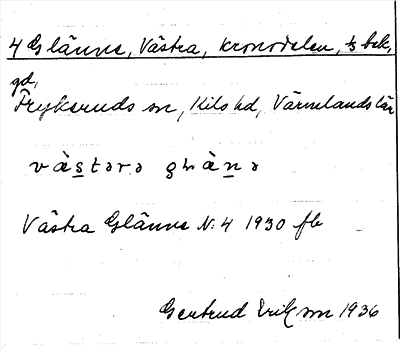 4 Glänne, Västra, kronodelen, ⅓ bek,
gd,
Fryksends sn, Kils hd, Värmlands län
Västra Glänne N:4 1930 flb
Gertrud Ericsson 1936